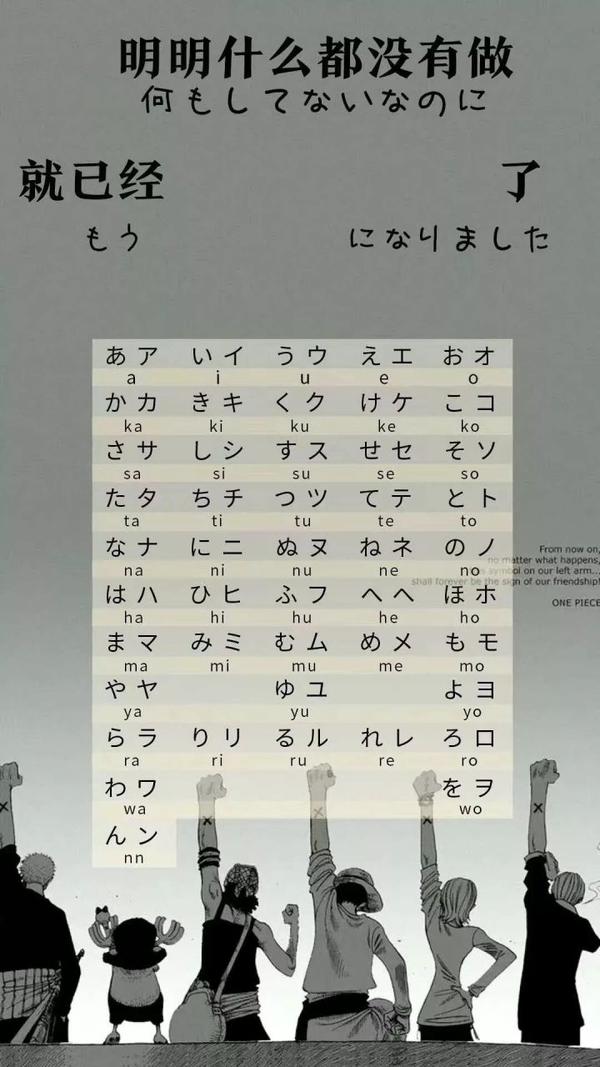 明明什么都没有做
何もしてないいなのに
就已经 了
もう になりました
あア いイ うウ えエ おオ
a i u e o
かカ きキ くク けケ こコ
ka ki ku ke ko
さサ しシ すス せセ そソ
sa si su se so
たタ ちチ つツ てテ とト
ta ti tu te to
なナ にニ ぬヌ ねネ のノ
na ni nu ne no
はハ ひヒ ふフ へヘ ほホ
ha hi hu he ho
まマ みミ むム めメ もモ
ma mi mu me mo
やヤ ゆユ よヨ
ya yu yo
らラ りリ るル れレ ろロ
ra ri ru re ro
わワ をヲ
wa wo
んン
nn
From now on,
no matter what happens,
symbol on our left arm...
shall forever be the sign of our friendship!
ONE PIECE